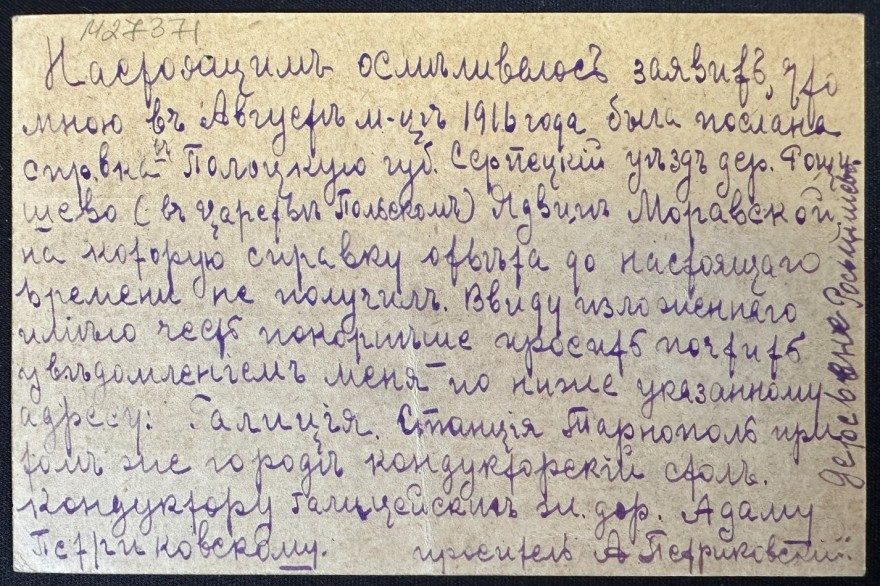 М27371
Настоящимъ осмѣливаюсь заявить, что
мною въ Августѣ м-цѣ 1916 года была послана
справка въ Полоцкую губ. Серпецкій уѣздъ дер. Рощи
шево (въ Царствѣ Польскомъ) Ядвигѣ Моравской
на которую справку отвѣта до настоящаго
времени не получилъ. Ввиду изложеннаго
имѣю честь покорнѣйше просить почтить
увѣдомленіемъ меня по ниже указанному
адресу: Галиція. Станція Тарнополь при
томъ же городѣ кондукторскій столъ.
Кондуктору Галицейскихъ ж. дор. Адаму
Петриковскому. проситель А Петриковскій.
деревне